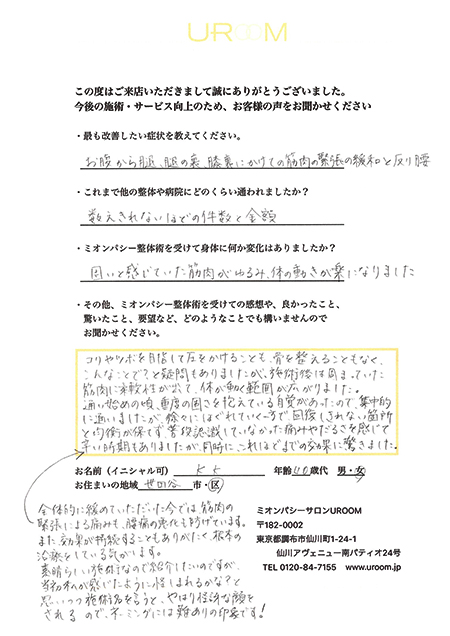 UROOM
この度はご来店いただきまして誠にありがとうございました。
今後の施術・サービス向上のため、お客様の声をお聞かせください
・最も改善したい症状を教えてください。
お腹から腿、腿の裏、膝裏にかけての筋肉の緊張の緩和と反り腰
・これまで他の整体や病院にどのくらい通われましたか？
数えきれないほどの件数と金額
・ミオンパシー整体術を受けて身体に何か変化はありましたか？
固いと感じていた筋肉がゆるみ、体の動きが楽になりました
・その他、ミオンパシー整体術を受けての感想や、良かったこと、
驚いたこと、要望など、どのようなことでも構いませんので
お聞かせください。
コリやツボを目指して圧をかけることも、骨を整えることもなく、
こんなことで？と疑問もありましたが、施術後は固まっていた
筋肉に柔軟性が出て、体が動く範囲が広がりました。
通い始めの頃、重度の固さを抱えている自覚があったので、集中的
に通いましたが、徐々にほぐれていく一方で回復しきれない箇所
と均衡が保てず、普段認識していなかった痛みやだるさを感じて
辛い時期もありましたが、同時に、これほどまでの効果に驚きました。
お名前（イニシャル可） K K 年齢 40 歳代 男・女
お住まいの地域 世田谷 市・区
全体的に緩めていただいた今では、筋肉の
緊張による痛みも、腰痛の悪化も防げています。
また、効果が持続することもありがたく、根本の
治療をしている気がします。
素晴らしい施術なので紹介したいのですが、
当初私が感じたように怪しまれるかな？と
思いつつ施術名を言うと、やはり怪訝な顔を
されるので、ネーミングには難ありの印象です！
ミオンパシーサロンUROOM
〒182-0002
東京都調布市仙川町1-24-1
仙川アヴェニュー南パティオ24号
TEL 0120-84-7155 www.uroom.jp